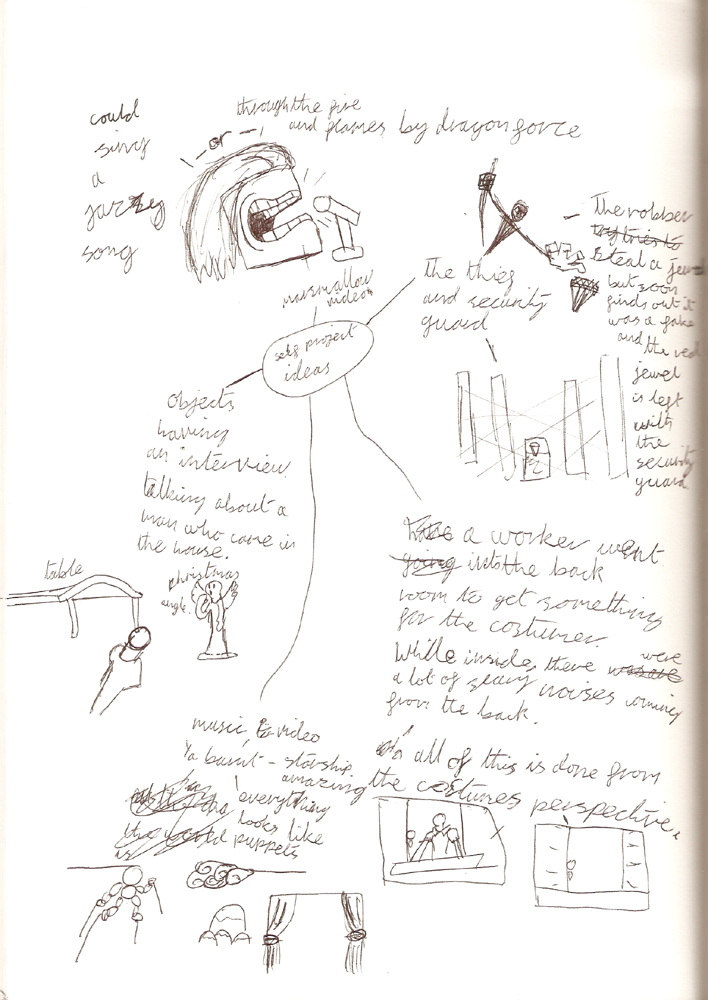 could
sing
a
jazzy
song
or
through the fire
and flames by dragonforce
marsmallow
video
self project
ideas
the thief
and security
guard
The robber
try tries to
steal a jewel
but soon
finds out it
was a fake
and
the real
jewel
is left
with
the
security
guard.
objects
having
an interview
talking about a
man who came in
the house.
table
christmas
angle.
a worker went
going into the back
room to get something
for the costumer.
While inside there were
a lot of scary noises coming
from the back.
all of this is done from
the costumes perspective.
music video
starship
amazing
everything
looks like
puppets